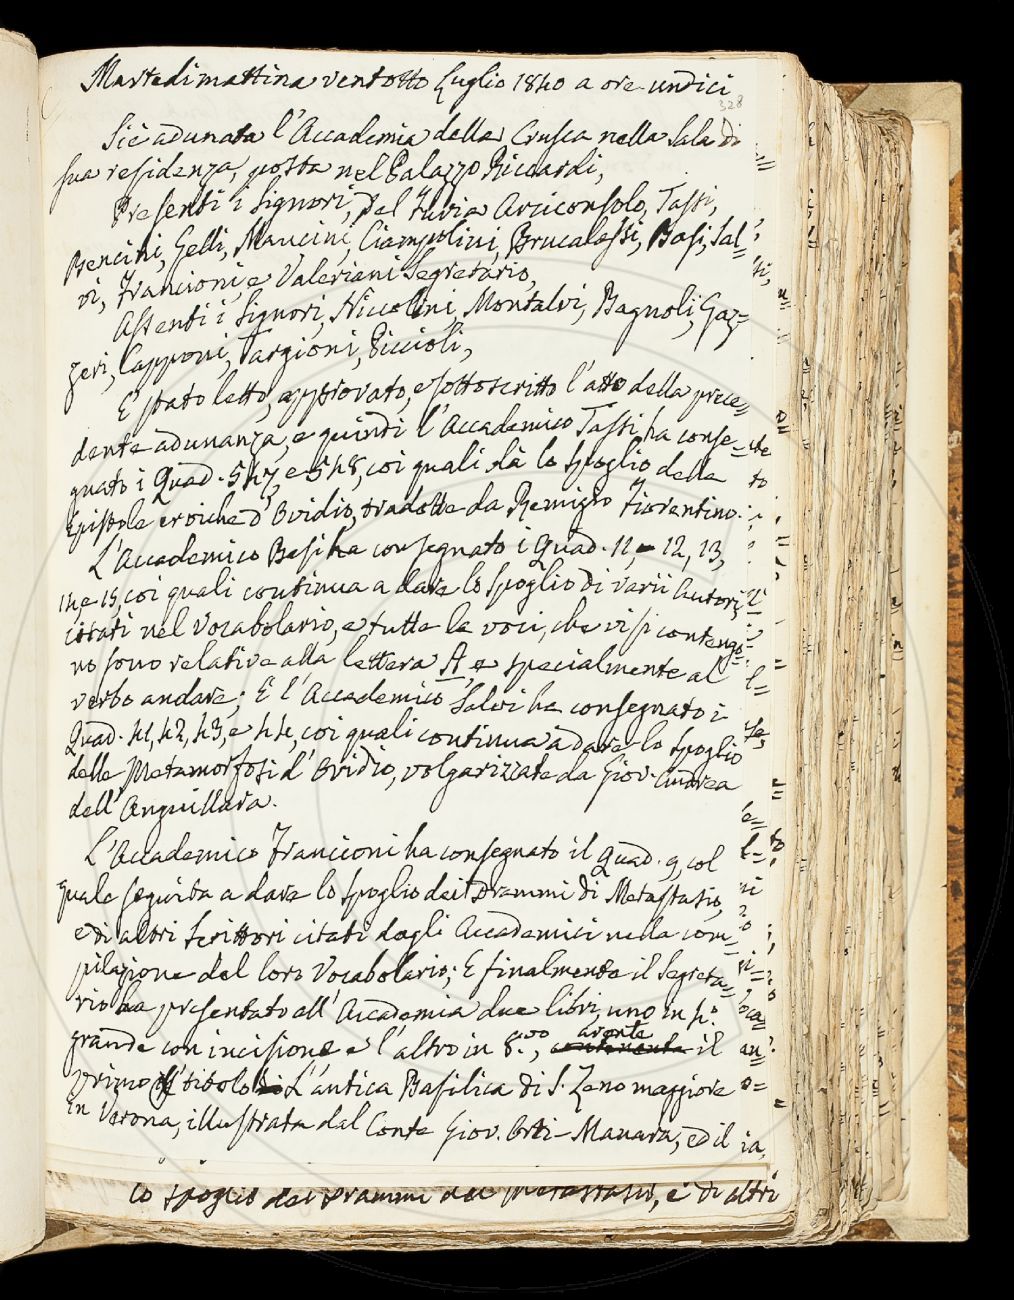 Martedi mattina ventotto Luglio 1840 a ore undici
328
Si è adunata l'Accademia della Crusca nella Sala di
sua residenza, posta nel Palazzo Riccardi,
Presenti i Signori, Del Furia Arciconsolo, Tassi,
Bencini, Gelli, Mancini, Ciampolini, Brucalassi, Basi, Sal=
vi, Francioni, e Valeriani Segretario,
Assenti i Signori, Niccolini, Montalvi, Bagnoli, Gaz=
zeri, Capponi, Targioni, Piccioli,
E' stato letto, approvato, e sottoscritto l'atto della prece=
dente adunanza, e quindi l'Accademico Tassi ha conse=
gnato i Quad. 547 e 548, coi quali dà lo spoglio della
Epistole eroiche d'Ovidio, tradotte da Remigio Fiorentino.
L'Accademico Basi ha consegnato i Quad. 11, 12, 13,
14, e 15, coi quali continua a dare lo spoglio di varii Autori
citati nel Vocabolario, e tutte le voci, che vi si contengo=
no sono relative alla lettera A, e specialmente al
verbo andare; E l'Accademico Salvi ha consegnato i
Quad. 41, 42, 43, e 44, coi quali continua a dare lo spoglio
delle Metamorfosi d'Ovidio, volgarizzate da Giov. Andrea
dell'Anguillara.
L'Accademico Francioni ha consegnato il Quad. 9, col
quale seguita a dare lo spoglio dei Drammi di Metastasio,
e di altri Scrittori citati dagli Accademici nella com=
pilazione del loro Vocabolario; E finalmente il Segreta=
rio ha presentato all'Accademia due libri, uno in f.o
grande con incisione e l'altro in 8.vo, avente il
primo il titolo L'antica Basilica di S. Zeno maggiore
in Verona, illustrata dal Conte Giov. Orti-Manara, ed il
lo spoglio dei Drammi del Metastasio, e di altri